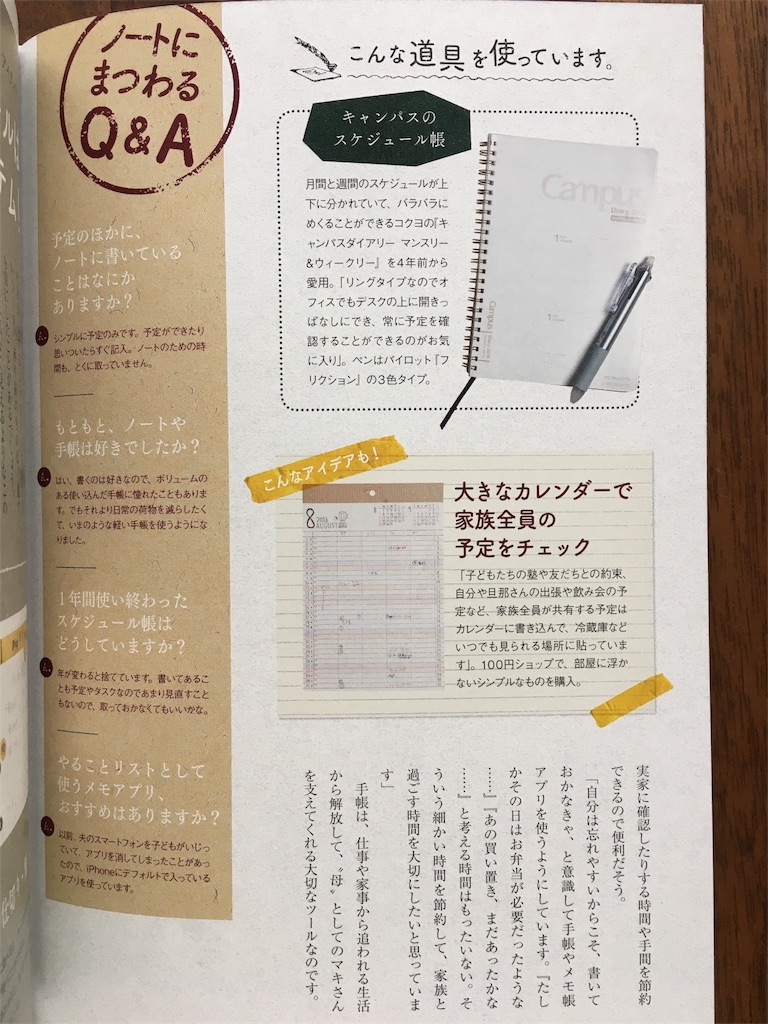 ノートに
まつわる
Q&A
予定のほかに、
ノートに書いている
ことはなにか
ありますか？
シンプルに予定のみです。予定ができたり
思いついたらすぐ記入。ノートのための時
間も、とくに取っていません。
もともと、ノートや
手帳は好きでしたか？
はい、書くのは好きなので、ボリュームの
ある使い込んだ手帳に憧れたこともありま
す。でもそれより日常の荷物を減らしたく
て、いまのような軽い手帳を使うようにな
りました。
1年間使い終わった
スケジュール帳は
どうしていますか？
年が変わると捨てています。書いてあるこ
とも予定やタスクなのであまり見直すこと
もないので、取っておかなくてもいいかな。
やることリストとして
使うメモアプリ、
おすすめはありますか？
以前、夫のスマートフォンを子どもがいじっ
ていて、アプリを消してしまったことがあっ
たので、iPhoneにデフォルトで入っている
アプリを使っています。
こんな道具を使っています。
キャンパスの
スケジュール帳
月間と週間のスケジュールが上
下に分かれていて、バラバラに
めくることができるコクヨの『キ
ャンパスダイアリー マンスリー
&ウィークリー』を4年前から
愛用。「リングタイプなのでオ
フィスでもデスクの上に開きっ
ぱなしにでき、常に予定を確
認することができるのがお気
に入り」。ペンはパイロット『フ
リクション』の3色タイプ。
Campus
Diary
こんなアイデアも！
8
2016
AUGUST
大きなカレンダーで
家族全員の
予定をチェック
「子どもたちの塾や友だちとの約束、
自分や旦那さんの出張や飲み会の予
定など、家族全員が共有する予定は
カレンダーに書き込んで、冷蔵庫など
いつでも見られる場所に貼っていま
す」。100円ショップで、部屋に浮か
ないシンプルなものを購入。
実家に確認したりする時間や手間を節約
できるので便利だそう。
「自分は忘れやすいからこそ、書いて
おかなきゃ、と意識して手帳やメモ帳
アプリを使うようにしています。『たし
かその日はお弁当が必要だったような
……』『あの買い置き、まだあったかな
……』と考える時間はもったいない。そ
ういう細かい時間を節約して、家族と
過ごす時間を大切にしたいと思っていま
す」
手帳は、仕事や家事から追われる生活
から解放して、“母”としてのマキさん
を支えてくれる大切なツールなのです。